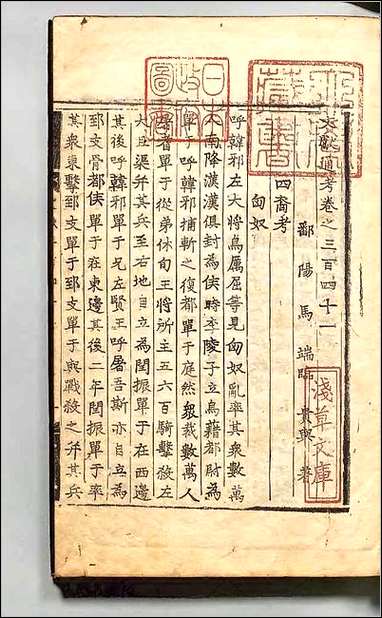 文獻通考卷之三百四十一
鄱陽馬端臨貴與著
四裔考
匈奴
呼韓邪左大將烏厲屈等見匈奴亂率其衆數萬
人南降漢漢俱封為侯時李陵子立烏藉都尉為
單于呼韓邪捕斬之復都單于庭然衆裁數萬人
屠耆單于從弟休旬王將所主五六百騎擊殺左
大且渠并其兵至右地自立為閏振單于在西邊
其後呼韓邪單于兄左賢王呼屠吾斯亦自立為
郅支骨都侯單于在東邊其後二年閏振單于率
其衆東擊郅支單于郅支單于與戰殺之并其兵
日本
政府
圖書
淺草文庫